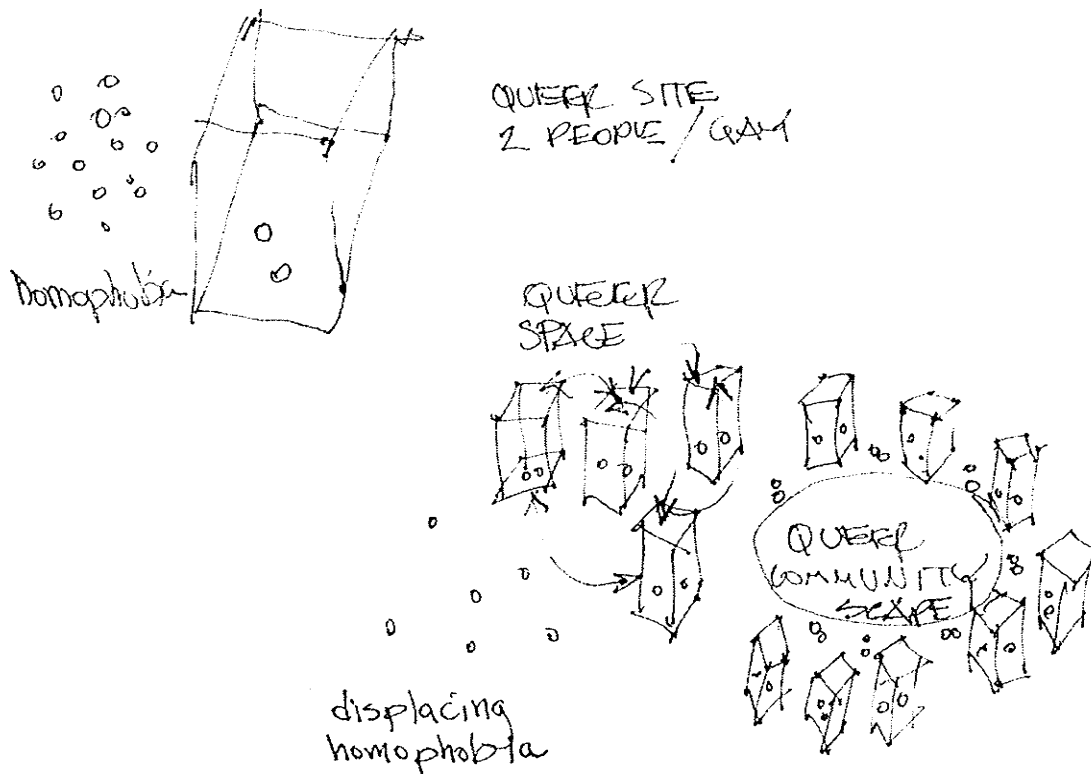 QUEER SITE
2 PEOPLE / GAY
homophobia
QUEER
SPACE
QUEER
COMMUNITY
SCAPE
displacing
homophobia